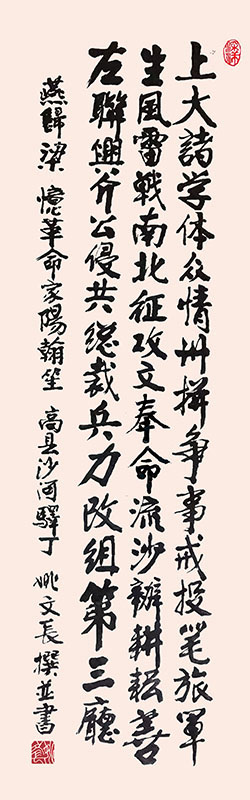 上大諸学体众情卅拼争事戎投笔旅軍
生風雷戰南北征攻文奉命流沙辦耕耘善
左聯興斧公侵共総裁兵力改組第三廳
燕歸梁 憶革命家陽翰笙 高县沙河驛丁 姚文長撰並書